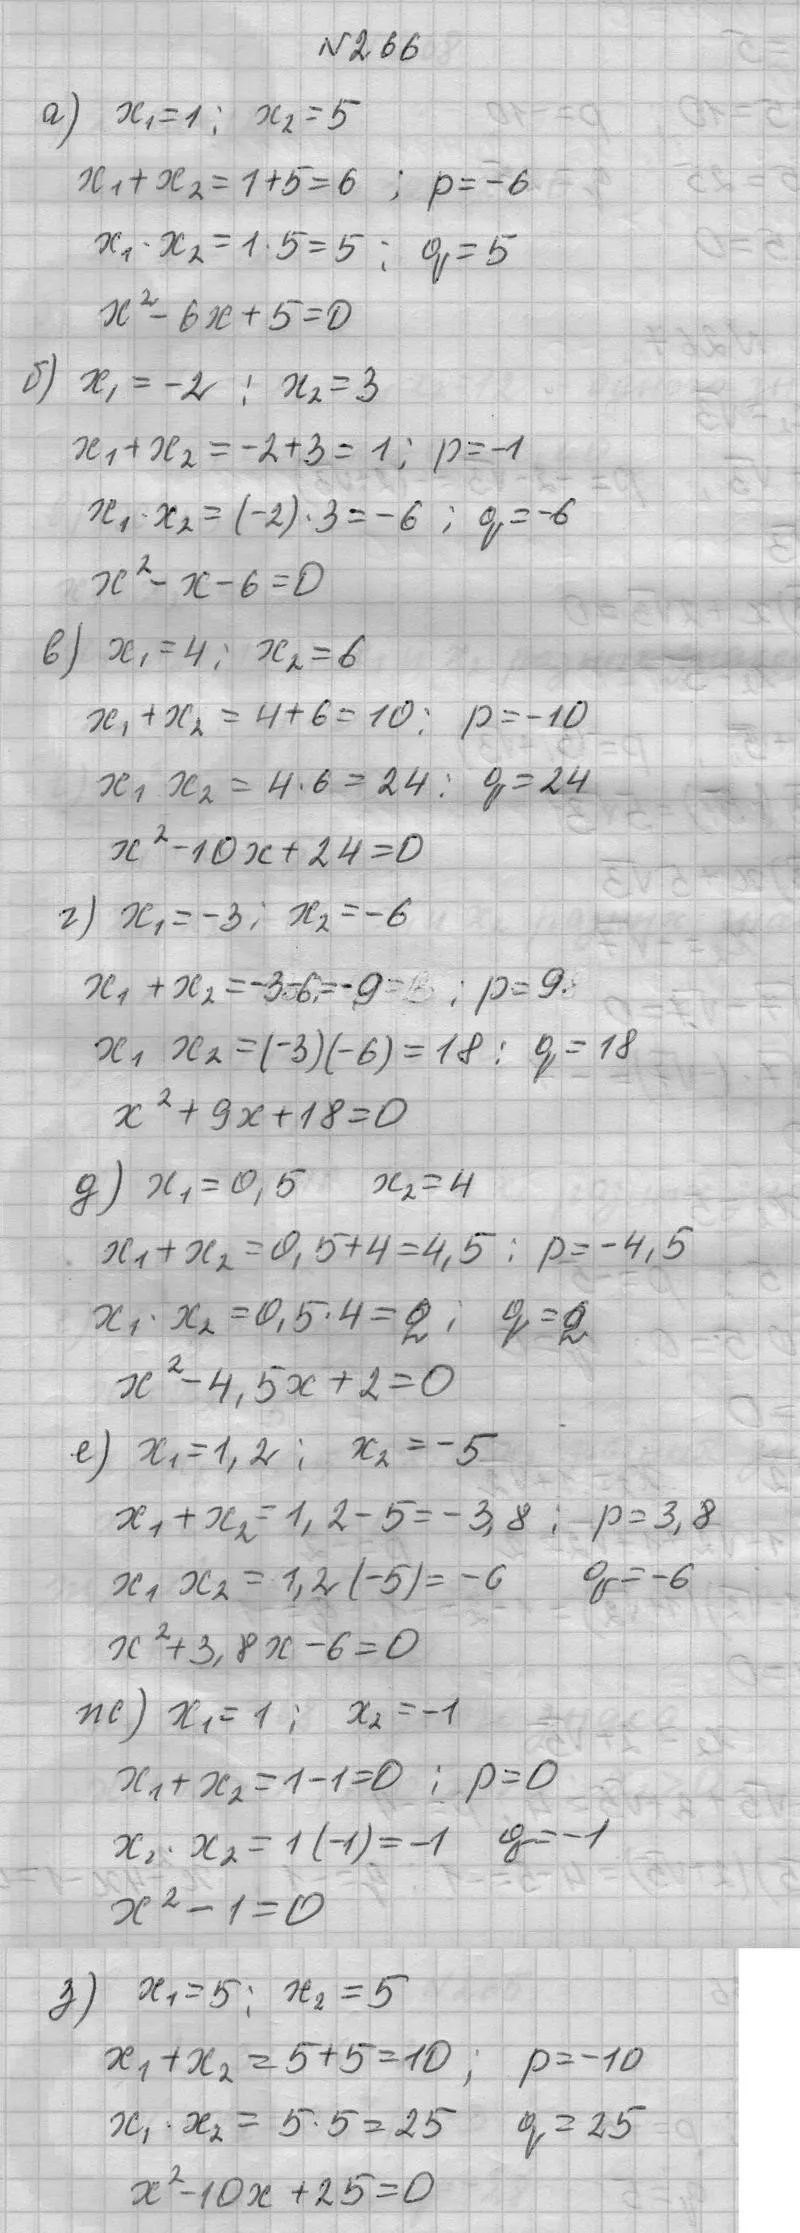 №266
а) x₁=1; x₂=5
x₁+x₂=1+5=6 ; p=-6
x₁·x₂=1·5=5 ; q=5
x²-6x+5=0
б) x₁=-2 ; x₂=3
x₁+x₂=-2+3=1; p=-1
x₁·x₂=(-2)·3=-6 ; q=-6
x²-x-6=0
в) x₁=4; x₂=6
x₁+x₂=4+6=10; p=-10
x₁ x₂=4·6=24; q=24
x²-10x+24=0
г) x₁=-3; x₂=-6
x₁+x₂=-3-6=-9 ; p=9
x₁ x₂=(-3)(-6)=18; q=18
x²+9x+18=0
д) x₁=0,5 x₂=4
x₁+x₂=0,5+4=4,5; p=-4,5
x₁·x₂=0,5·4=2; q=2
x²-4,5x+2=0
е) x₁=1,2; x₂=-5
x₁+x₂=1,2-5=-3,8; p=3,8
x₁ x₂=1,2(-5)=-6 q=-6
x²+3,8x-6=0
ж) x₁=1; x₂=-1
x₁+x₂=1-1=0 ; p=0
x₁·x₂=1(-1)=-1 q=-1
x²-1=0
з) x₁=5; x₂=5
x₁+x₂=5+5=10; p=-10
x₁·x₂=5·5=25 q=25
x²-10x+25=0